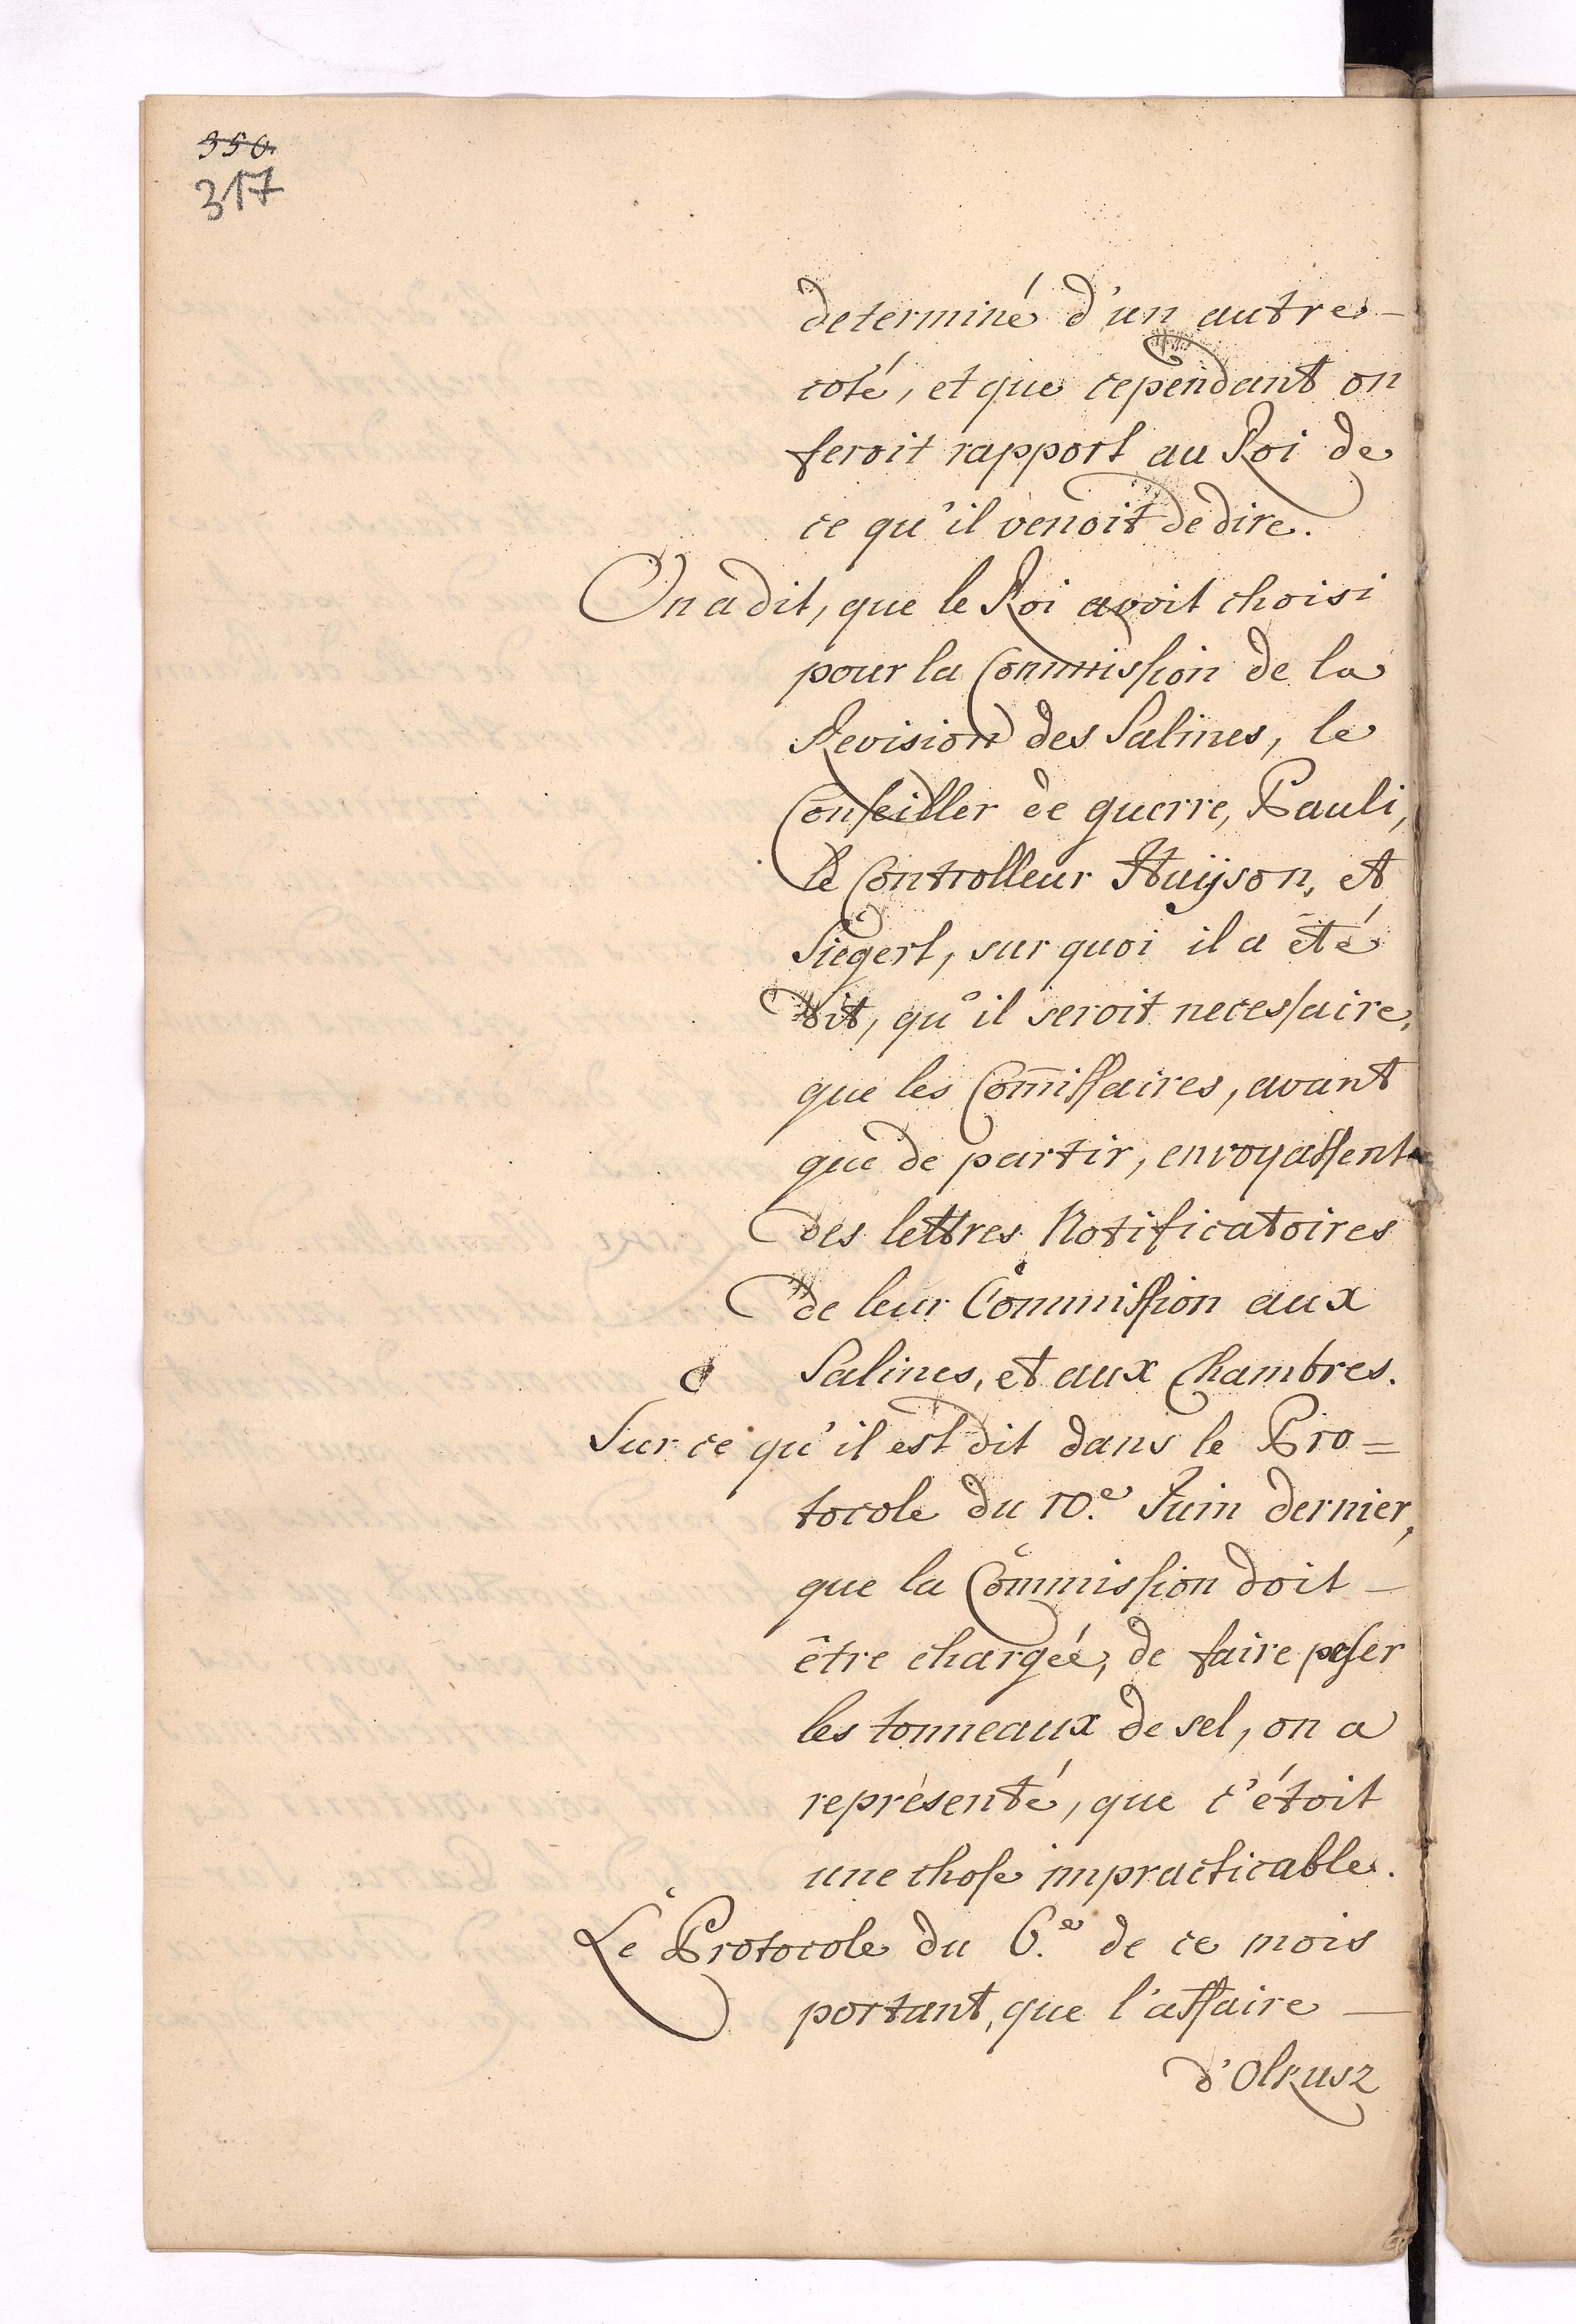 350.
317
determiné d'un autre -
coté, et que cependant on
feroit rapport au Roi de
ce qu'il venoit de dire.
On a dit, que le Roi avoit choisi
pour la Commission de la
Revision des Salines, le
Conseiller de guerre, Pauli,
le Controlleur Huÿson, et
Siegert, sur quoi il a été
dit, qu'il seroit necessaire,
que les Com̄issaires, avant
que de partir, envoyassent
des lettres Notificatoires
de leur Commission aux
Salines, et aux Chambres.
Sur ce qu'il est dit dans le Pro=
tocole du 10.e Juin dernier,
que la Commission doit -
être chargée, de faire peser
les tonneaux de sel, on a
représenté, que c'étoit
une chose impracticable.
Le Protocole du 6.e de ce mois
portant, que l'affaire —
d'Olkusz